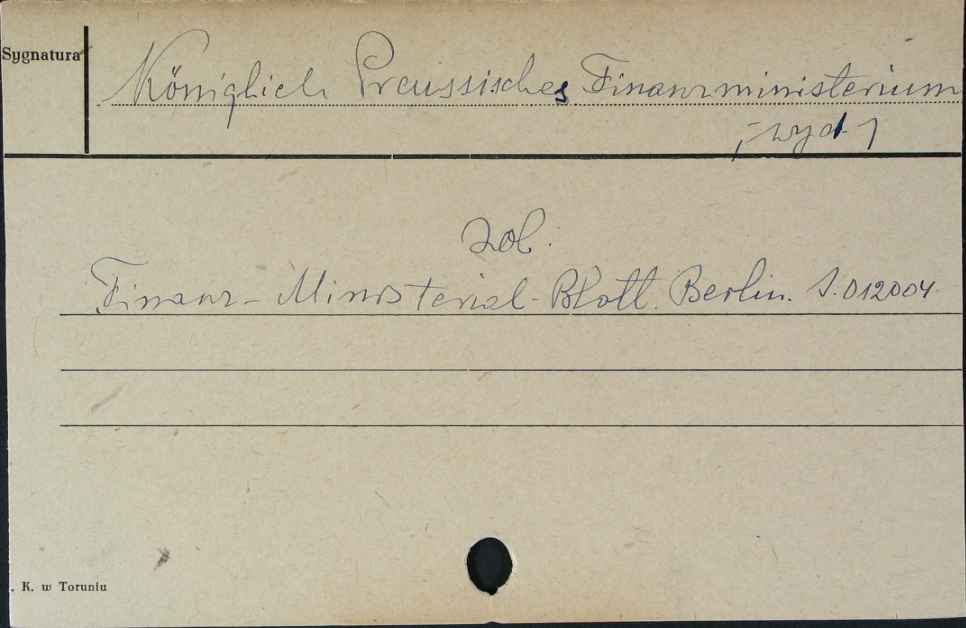 Sygnatura
Königlich Preussisches Finanzministerium
; wyd.
zob.
Finanz-Ministerial-Blatt. Berlin. S.012004.
. K. w Toruniu